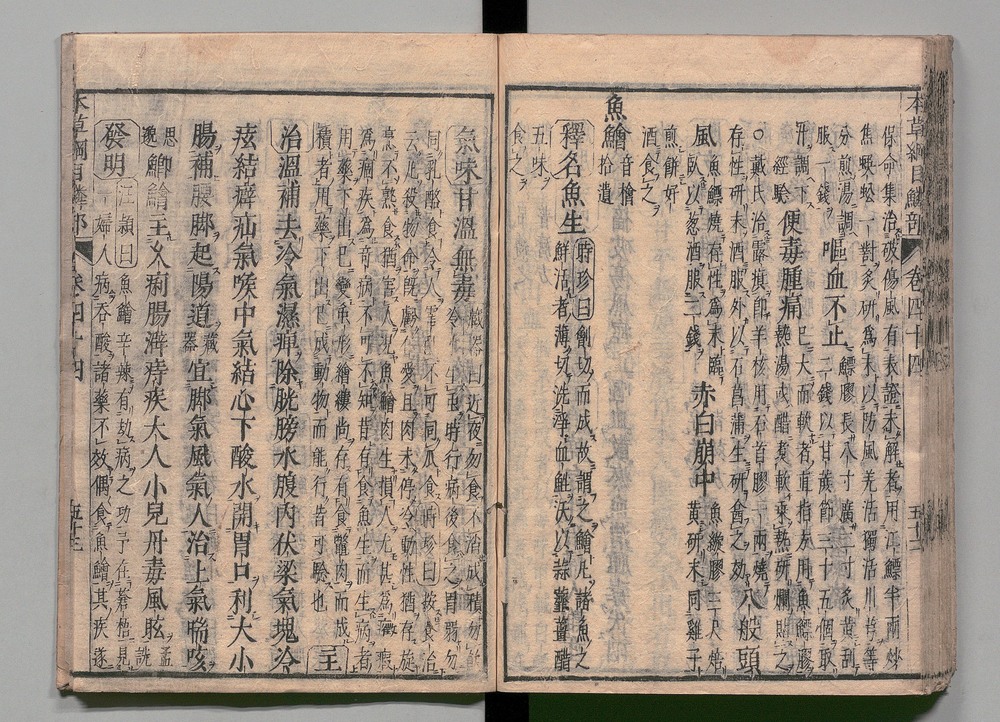 本草綱目鱗部 卷四十四 五十二
保命集治破傷風有表證未解者用江鰾半兩炒
焦蜈蚣一對炙研爲末以防風羌活獨活川芎等
分煎湯調服一錢 嘔血不止 鰾膠長八寸廣二寸炙黃刮
二錢以甘蔗節三十五個取
汁調下 經驗 便毒腫痛 已大而軟者直指方用魚鰾膠
熱湯或醋煑軟乘熱研爛貼之
○戴氏治露瘕即羊核用石首膠一兩燒
存性研末酒服外以石菖蒲生研盦之效 八般頭
風 魚鰾燒存性爲末臨
臥以葱酒服二錢 赤白崩中 魚鰾膠三尺焙
黃研末同雞子
煎餅好
酒食之
魚鱠 音檜 拾遺
釋名魚生 時珍曰劊切而成故謂之鱠凡諸魚之
鮮活者薄切洗淨血鮏沃以蒜虀薑醋
五味
食之
氣味甘溫無毒 藏器曰近夜勿食不消成積勿飮
冷水生虫時行病後食之胃弱勿
同乳酪食令人霍亂不可同瓜食時珍曰按食治
云凡殺物命既虧仁愛且肉未停冷動性猶存旋
烹不熟食猶害人況魚鱠肉生損人尤甚爲癥瘕
爲痼疾爲奇病不可不知昔有食魚生而生病者
用藥下出已變虫形鱠縷尚存有食鱉肉而成
積者用藥下出已成動物而能行皆可驗也 主
治溫補去冷氣濕痺除膀胱水腹內伏梁氣塊冷
痃結癖疝氣喉中氣結心下酸水開胃口利大小
腸補腰脚起陽道 藏器 宜脚氣風氣人治上氣喘咳
思邈 鯽鱠主久痢腸澼痔疾大人小兒丹毒風眩 孟詵
發明 汪穎曰魚鱠辛辣有劫病之功予在蒼梧見
一婦人病吞酸諸藥不效偶食魚鱠其疾遂
本草綱目鱗部 卷四十四 五十三